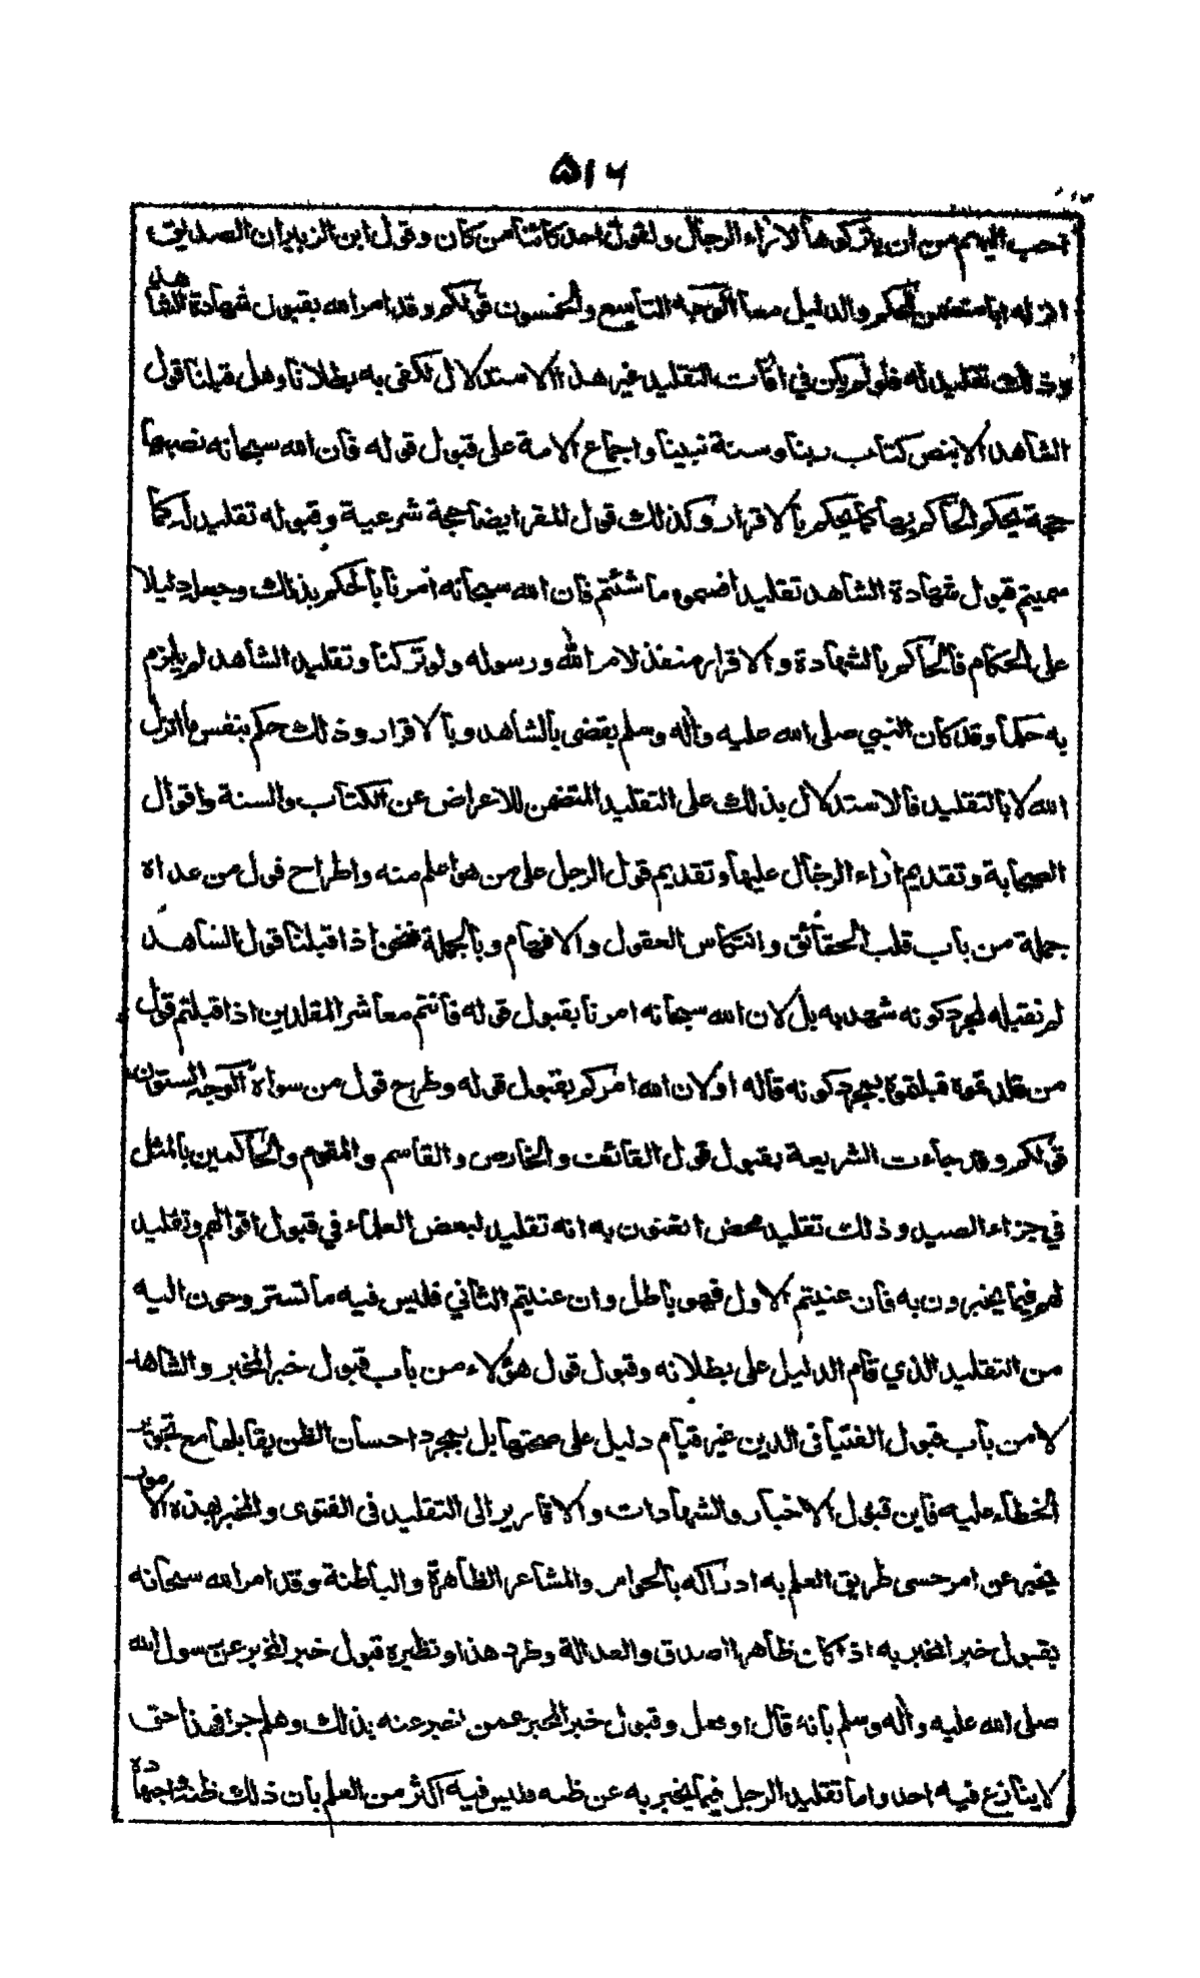 ۵۱۶
احب اليهم من ان يتركوها لآراء الرجال ولقول احد كائنا من كان وقول ابن الزبير ان الصديق
انزله ابا متضمن للحكم والدليل معا الوجه التاسع والخمسون قولكم وقد امر الله بقبول شهادة الشاهد
وذلك تقليد له فلو لم يكن في آفات التقليد غير هذا الاستدلال لكفى به بطلانا وهل قبلنا قول
الشاهد الا بنص كتاب ربنا وسنة نبينا واجماع الامة على قبول قوله فان الله سبحانه نصبها
حجة يحكم الحاكم بها كما يحكم بالاقرار وكذلك قول المقر ايضا حجة شرعية وقبوله تقليد له كما
سميتم قبول شهادة الشاهد تقليدا فسموه ما شئتم فان الله سبحانه امرنا بالحكم بذلك وجعله دليلا
على الحكام فالحاكم بالشهادة والاقرار منفذ لامر الله ورسوله ولو تركنا وتقليد الشاهد لم يلزم
به حكما وقد كان النبي صلى الله عليه وآله وسلم يقضى بالشاهد وبالاقرار وذلك حكم بنفس ما انزل
الله لا بالتقليد فالاستدلال بذلك على التقليد المتضمن للاعراض عن الكتاب والسنة واقوال
الصحابة وتقديم آراء الرجال عليها وتقديم قول الرجل على من هو اعلم منه واطراح قول من عداه
جملة من باب قلب الحقائق وانتكاس العقول والافهام وبالجملة فنحن اذا قبلنا قول الشاهد
لم نقبله لمجرد كونه شهد به بل لان الله سبحانه امرنا بقبول قوله فانتم معاشر المقلدين اذا قبلتم قول
من قلدتموه قبلتموه بمجرد كونه قاله او لان الله امركم بقبول قوله وطرح قول من سواه الوجه الستون
قولكم وقد جاءت الشريعة بقبول قول القائف والخارص والقاسم والمقوم والحاكمين بالمثل
في جزاء الصيد وذلك تقليد محض اتعنون به انه تقليد لبعض العلماء في قبول اقوالهم وتقليد
لهم فيما يخبرون به فان عنيتم الاول فهو باطل وان عنيتم الثاني فليس فيه ما تستروحون اليه
من التقليد الذي قام الدليل على بطلانه وقبول قول هؤلاء من باب قبول خبر المخبر والشاهد
لا من باب قبول الفتيا في الدين غير قيام دليل على صحتها بل بمجرد احسان الظن بقائلها مع تجويز
الخطاء عليه فاين قبول الاخبار والشهادات والاقارير الى التقليد في الفتوى والمخبر بهذه الامور
يخبر عن امر حسى طريق العلم به ادراكه بالحواس والمشاعر الظاهرة والباطنة وقد امر الله سبحانه
بقبول خبر المخبر به اذا كان ظاهر الصدق والعدالة وطرد هذا ونظيره قبول خبر المخبر عن رسول الله
صلى الله عليه وآله وسلم بانه قال او فعل وقبول خبر المخبر عمن اخبر عنه بذلك وهلم جرا فهذا حق
لا ينازع فيه احد واما تقليد الرجل فيما يخبر به عن ظنه فليس فيه اكثر من العلم بان ذلك ظنه واجتهاده